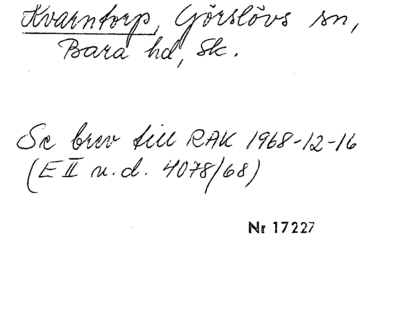 Kvarntorp, Görslövs sn,
Bara hd, Sk.
Se brev till RAK 1968-12-16
(E II u.d. 4078/68)
Nr 17227